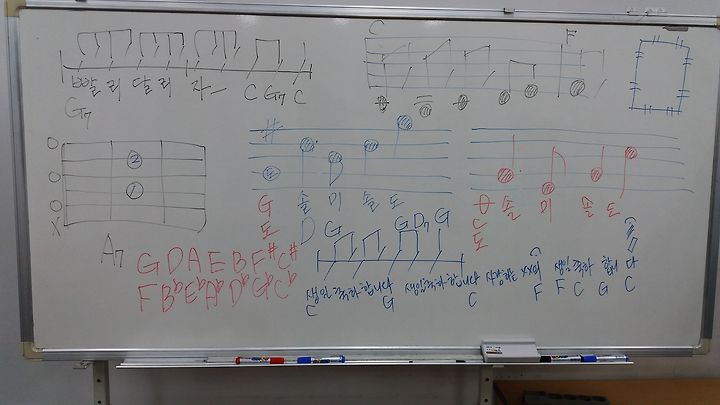 빨리 달리자
G7 C G7 C
C F
A7
G 솔 미 솔 도
도 D G G D7 G
솔 미 솔 도
C
도
G D A E B F# C#
F Bb Eb Ab Db Gb Cb
생일 축하합니다 생일축하합니다 사랑하는 xx의 생일 축하 합니다
C G C F F C G C